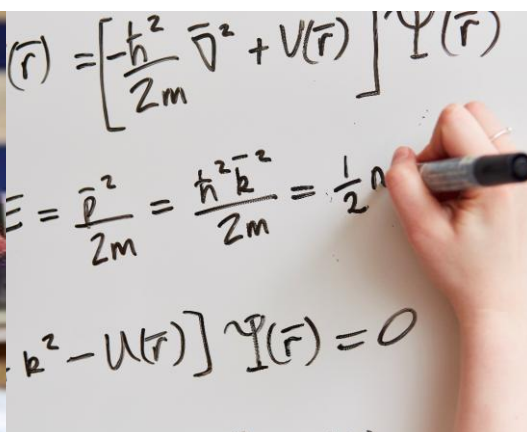 (r̄) = [-ħ²/2m ∇̄² + V(r̄)] Ψ(r̄)
E = p̄²/2m = ħ²k̄²/2m = ½
k² - U(r̄)] Ψ(r̄) = 0